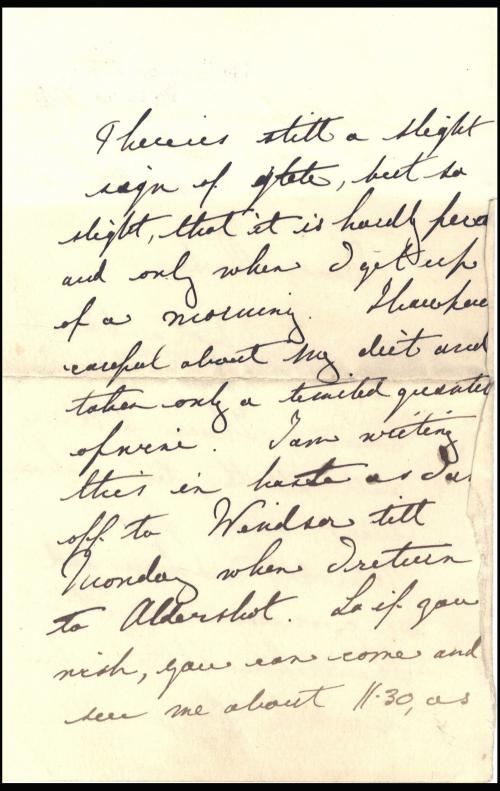 There is still a slight
sign of glete, but so
slight, that it is hardly
and only when I get up
of a morning. I have been
careful about my diet and
taken only a limited quantity
of wine. I am writing
this in haste as I am
off to Windsor till
Monday when I return
to Aldershot. So if you
wish, you can come and
see me about 11.30, as